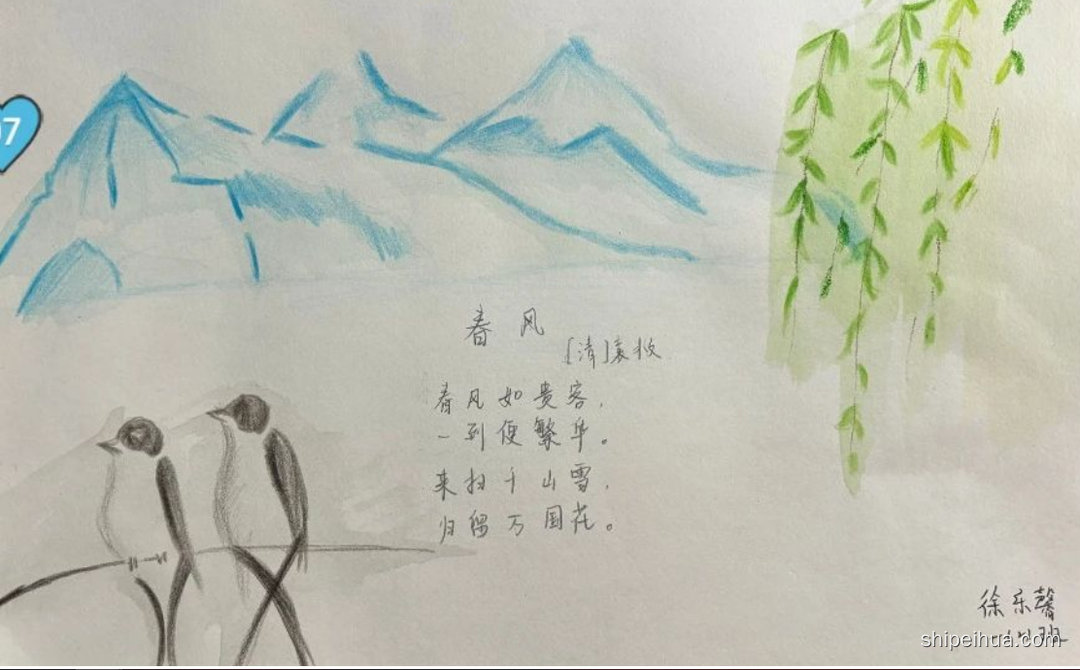 春风
[清]袁枚
春风如贵客,
一到便繁华。
来扫千山雪,
归留万国花。
徐乐馨
shipeihua.com